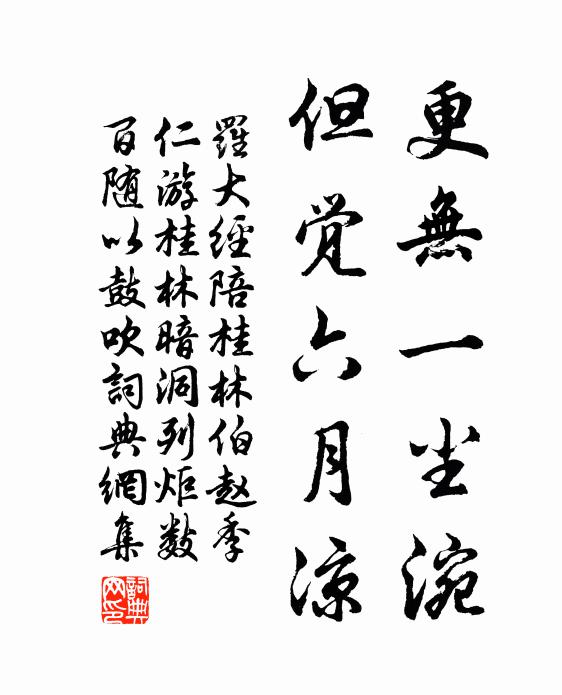 更無一尘涴
但觉六月涼
羅大經陪桂林伯赵季
仁游桂林暗洞列炬数
百随以鼓吹詞典網集
詞典
网印